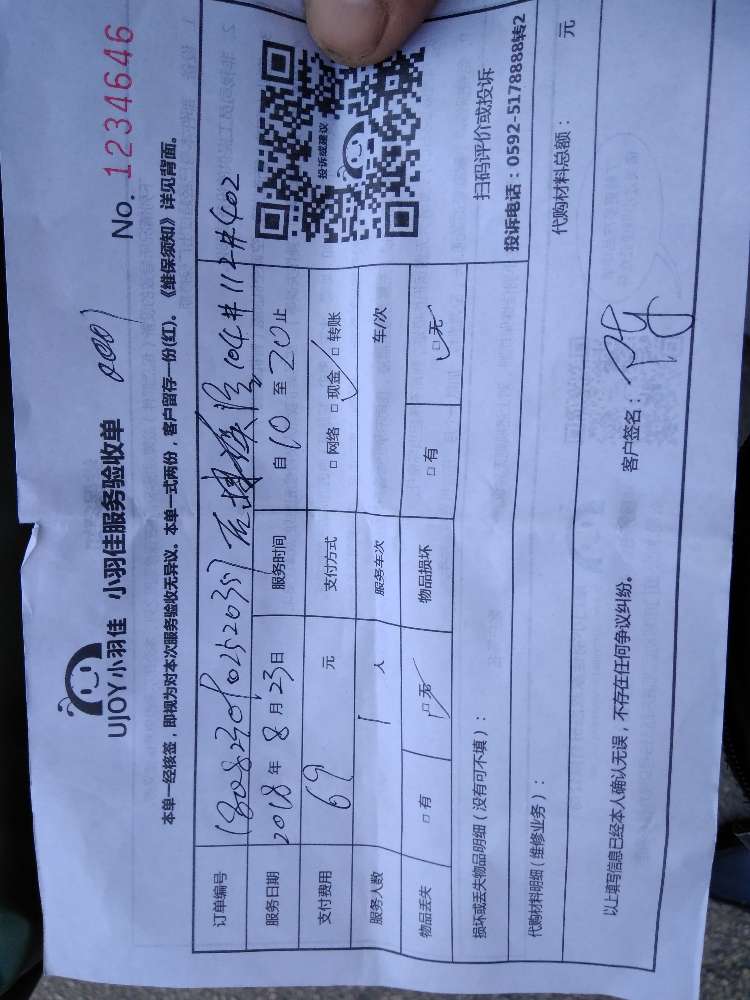 UJOY小羽佳 小羽佳服务验收单 0001 No. 1234646
本单一经核签，即视为对本次服务验收无异议。本单一式两份，客户留存一份(红)。《维保须知》详见背面。
订单编号 104#112#402
服务日期 2018年8月23日 服务时间 自10至20止
支付费用 69 元 支付方式 □网络 □现金 ✓ □转账
服务人数 1 人 服务车次 车/次
物品丢失 □有 □无 ✓ 物品损坏 □有 □无 ✓
投诉或建议
扫码评价或投诉
投诉电话：0592-5178888转2
损坏或丢失物品明细（没有可不填）：
代购材料明细（维修业务）： 代购材料总额： 元
以上填写信息已经本人确认无误，不存在任何争议纠纷。 客户签名：